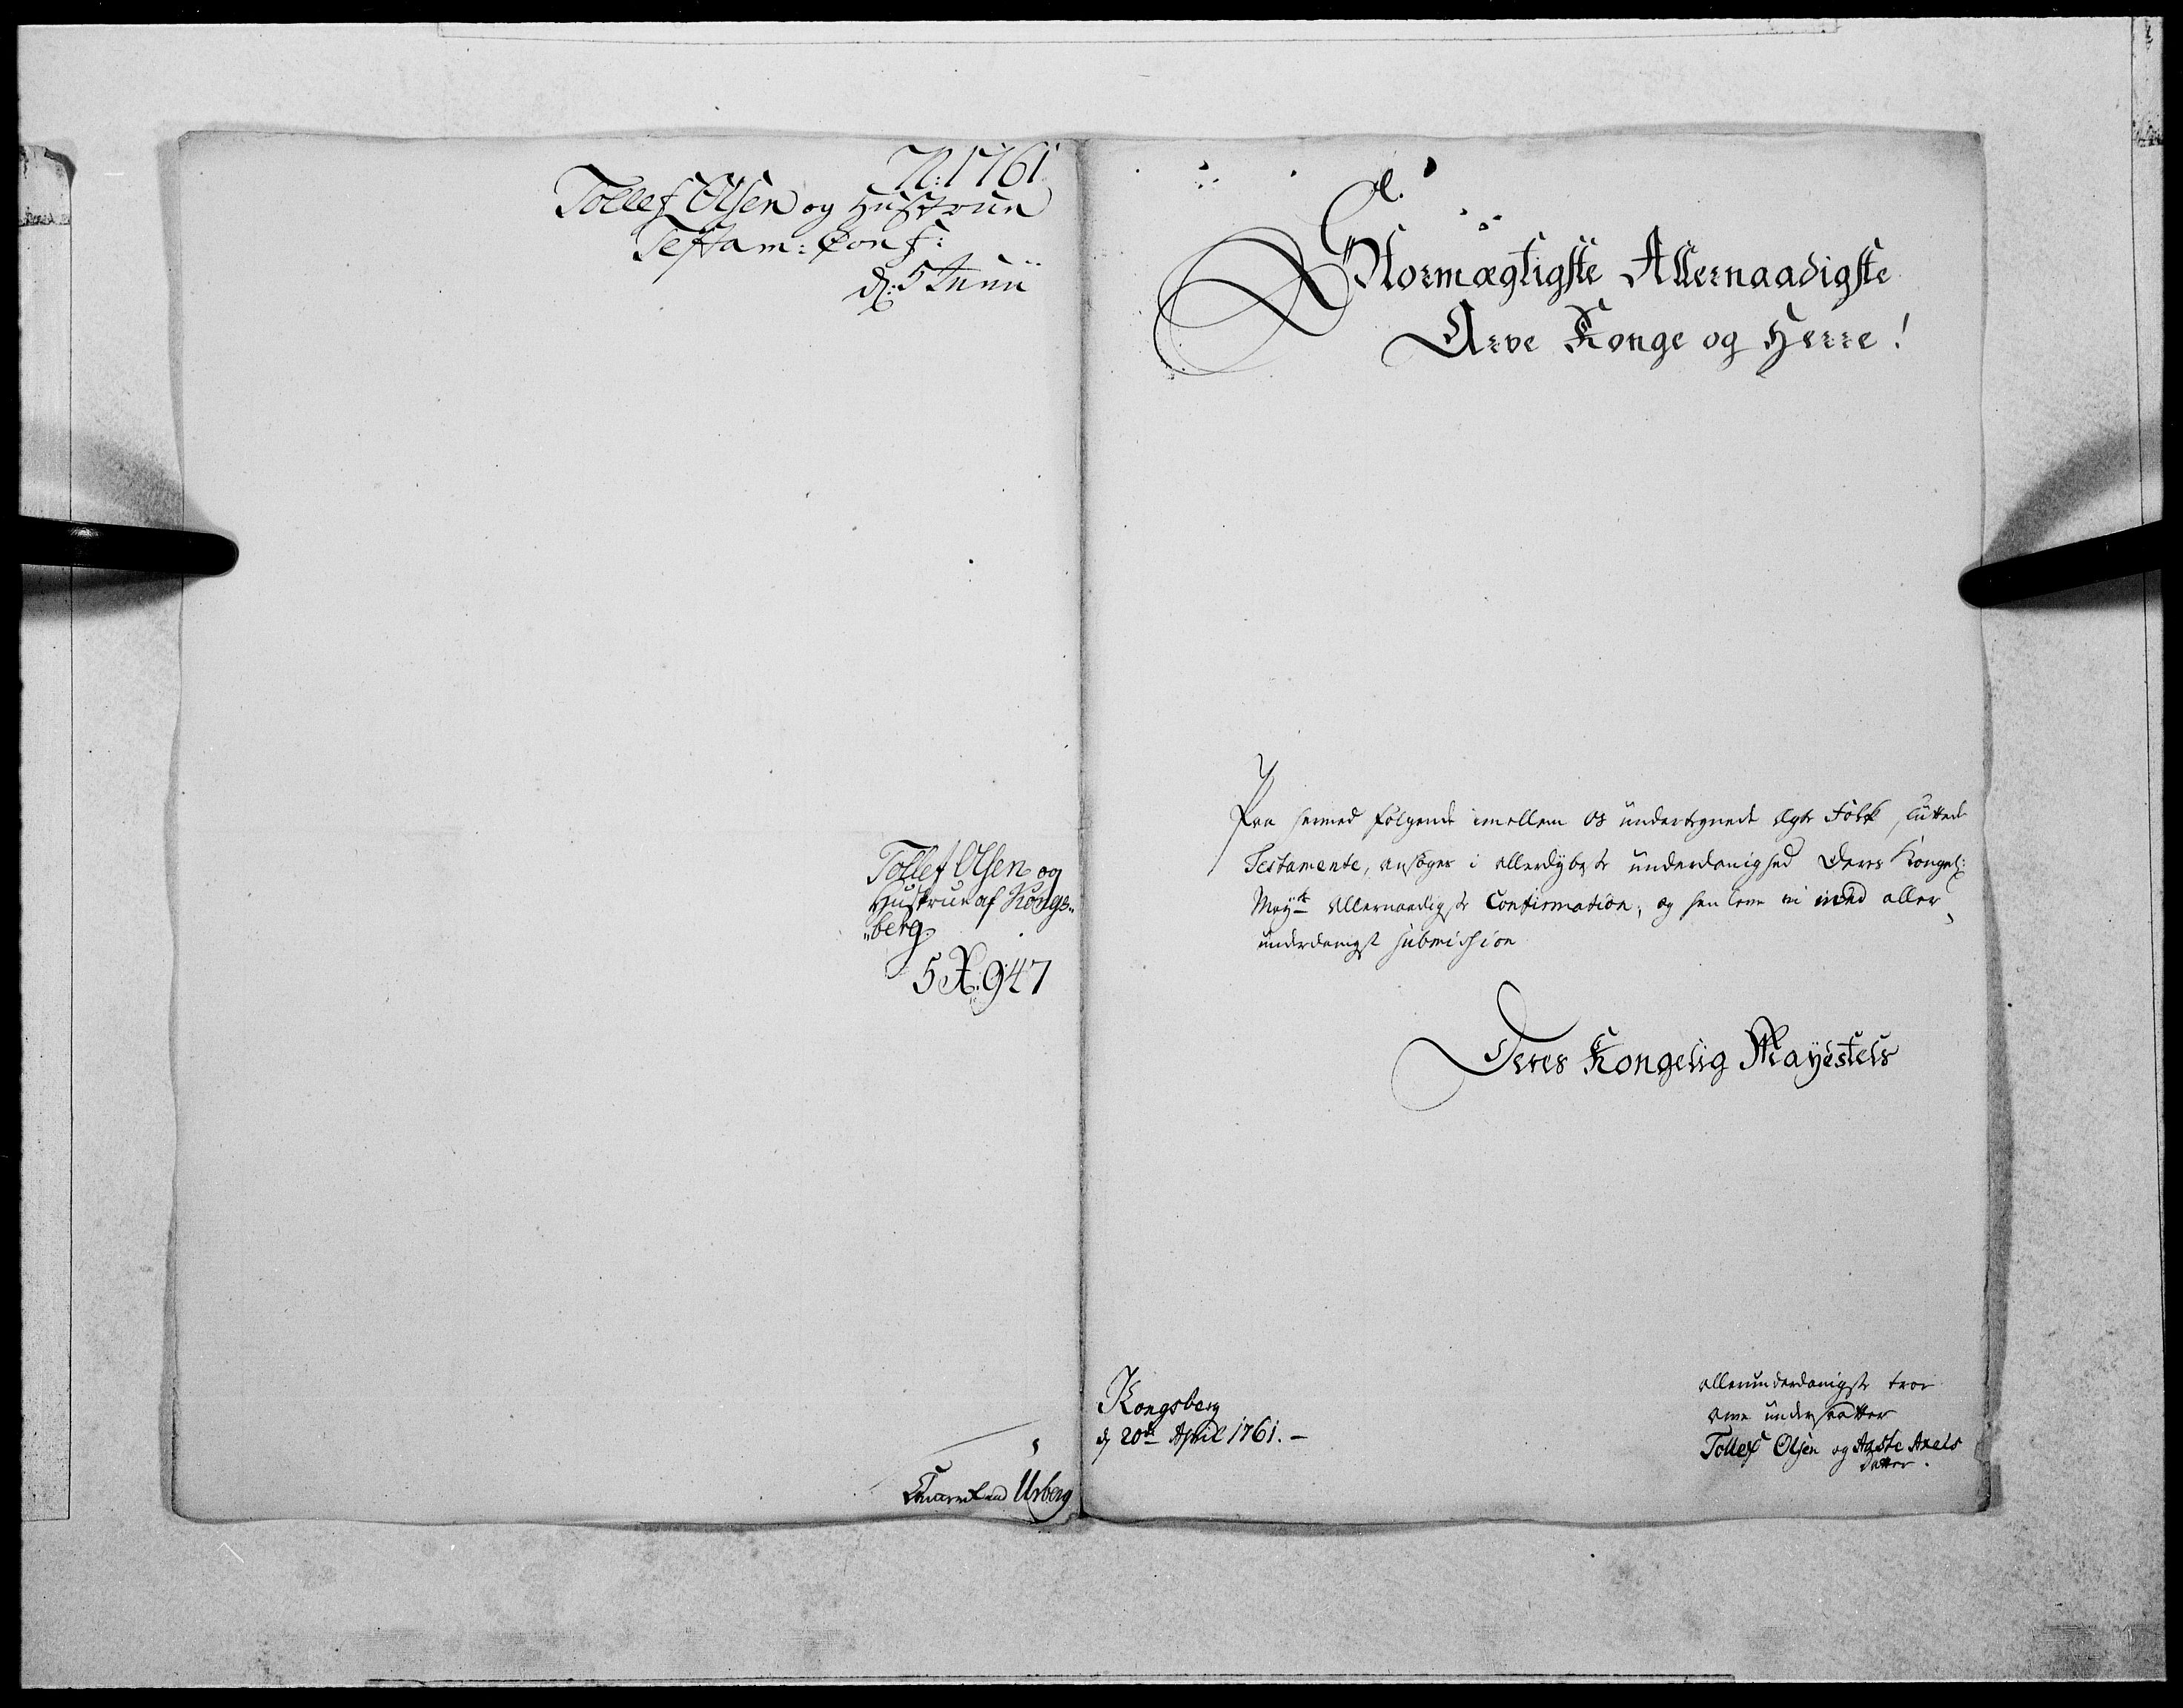 N: 1761
Tollef Olsen og Hustrue
Testam: Conf:
d: 5 Junii
Tollef Olsen og
Hustrue af Kongs„
„berg.
5 X: 947
Urberg
Stormægtigste Allernaadigste
Arve Konge og Herre!
Paa hermed følgende imellem os undertegnede Egte Folk sluttede
Testamente, ansøges i allerdybeste underdanighed Deres Kongel:
May:ts Allernaadigste Confirmation, og henleve vi med aller
underdanigst submission
Deres Kongelig Mayestets
Kongsberg
d 20de April 1761. –
allerunderdanigste troe
arve undersaatter
Tollef Olsen og Agste Axels
datter.